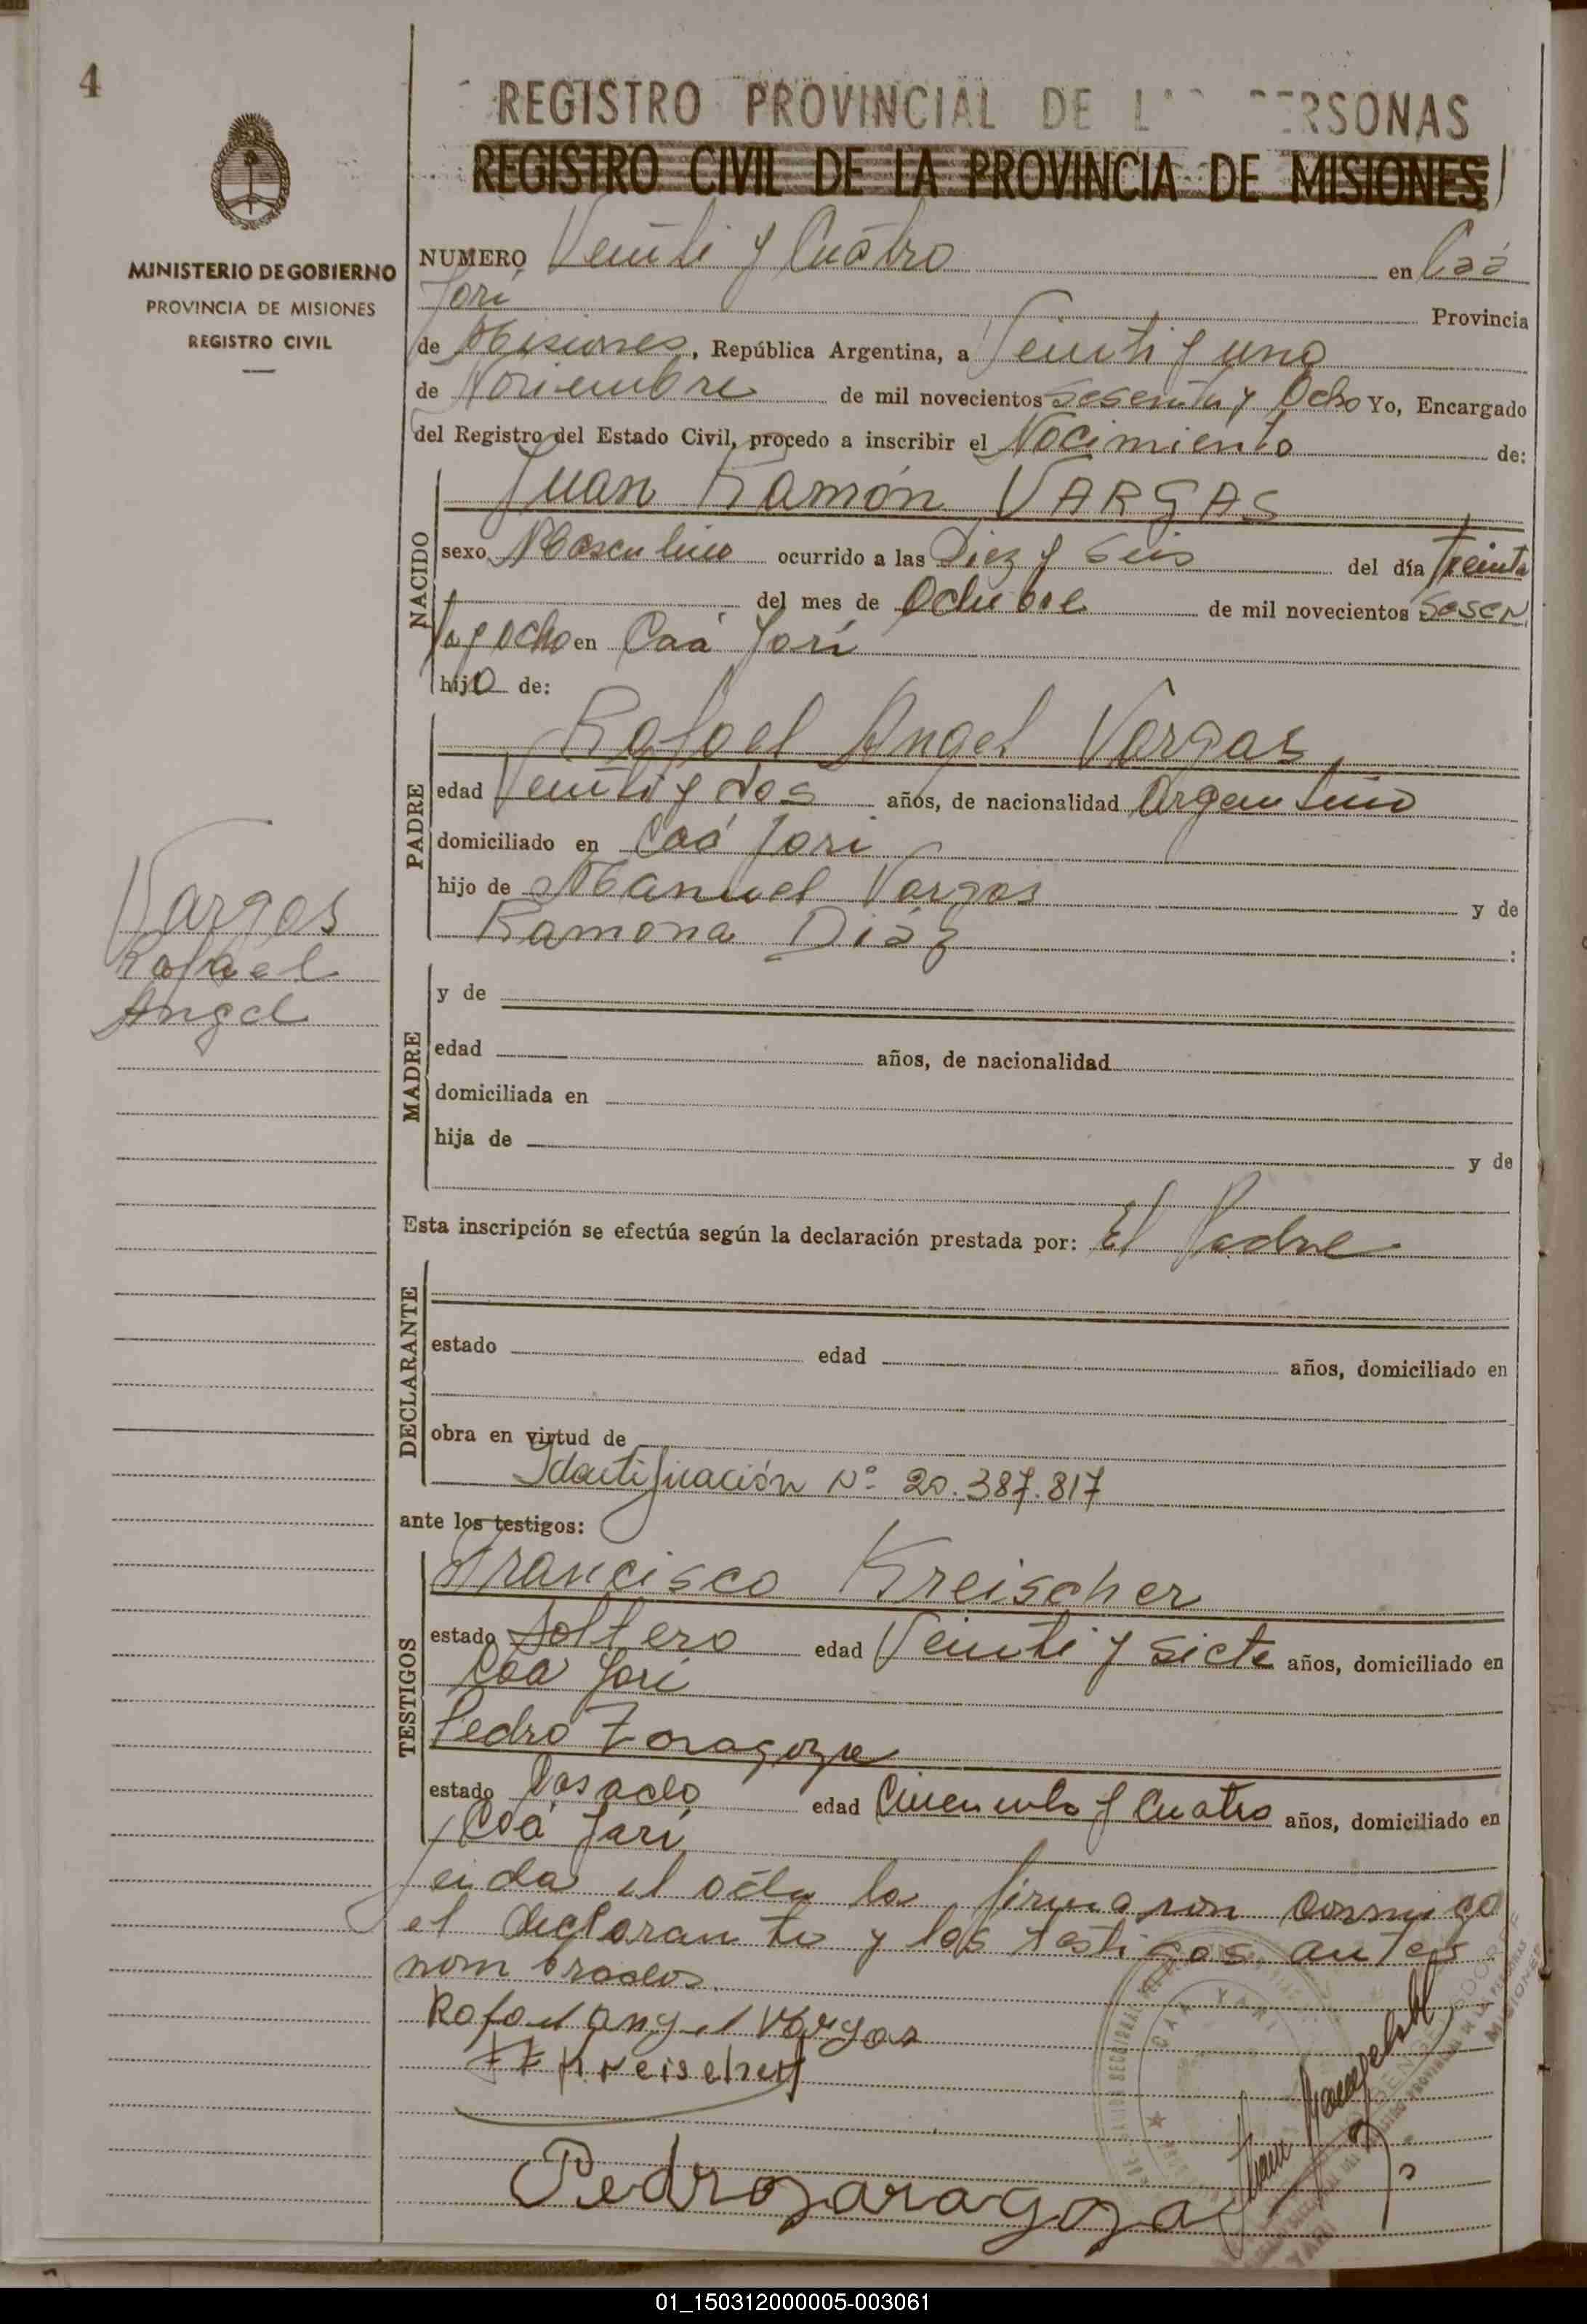 4
REGISTRO PROVINCIAL DE L PERSONAS
REGISTRO CIVIL DE LA PROVINCIA DE MISIONES
MINISTERIO DE GOBIERNO
PROVINCIA DE MISIONES
REGISTRO CIVIL
NUMERO Veinti y Cuatro en Caá
Yarí Provincia
de Misiones, República Argentina, a Veinti y uno
de Noviembre de mil novecientos Sesenta y Ocho Yo, Encargado
del Registro del Estado Civil, procedo a inscribir el Nacimiento de:
NACIDO
Juan Ramón VARGAS
sexo Masculino ocurrido a las Diez y Seis del día Treinta
del mes de Octubre de mil novecientos Sesen
ta y ocho en Caá Yarí
hijo de:
PADRE
Rafael Angel Vargas
edad Veinti y dos años, de nacionalidad Argentino
domiciliado en Caá Yari
hijo de Manuel Vargas y de
Ramona Diáz :
Vargas
Rafael
Angel
MADRE
y de
edad años, de nacionalidad
domiciliada en
hija de y de
Esta inscripción se efectúa según la declaración prestada por: El Padre
DECLARANTE
estado edad años, domiciliado en
obra en virtud de
Identificación Nº 20.387.817
ante los testigos:
TESTIGOS
Francisco Kreischer
estado Soltero edad Veinti y Siete años, domiciliado en
Caá Yarí
Pedro Zaragoza
estado Casado edad Cincuenta y Cuatro años, domiciliado en
Caá Yarí
Leida el acta la firmaron conmigo
el declarante y los testigos antes
nombrados.
Rafael angel Vargas
Kreischer
Pedro zaragoza
CAA YARI
01_150312000005-003061